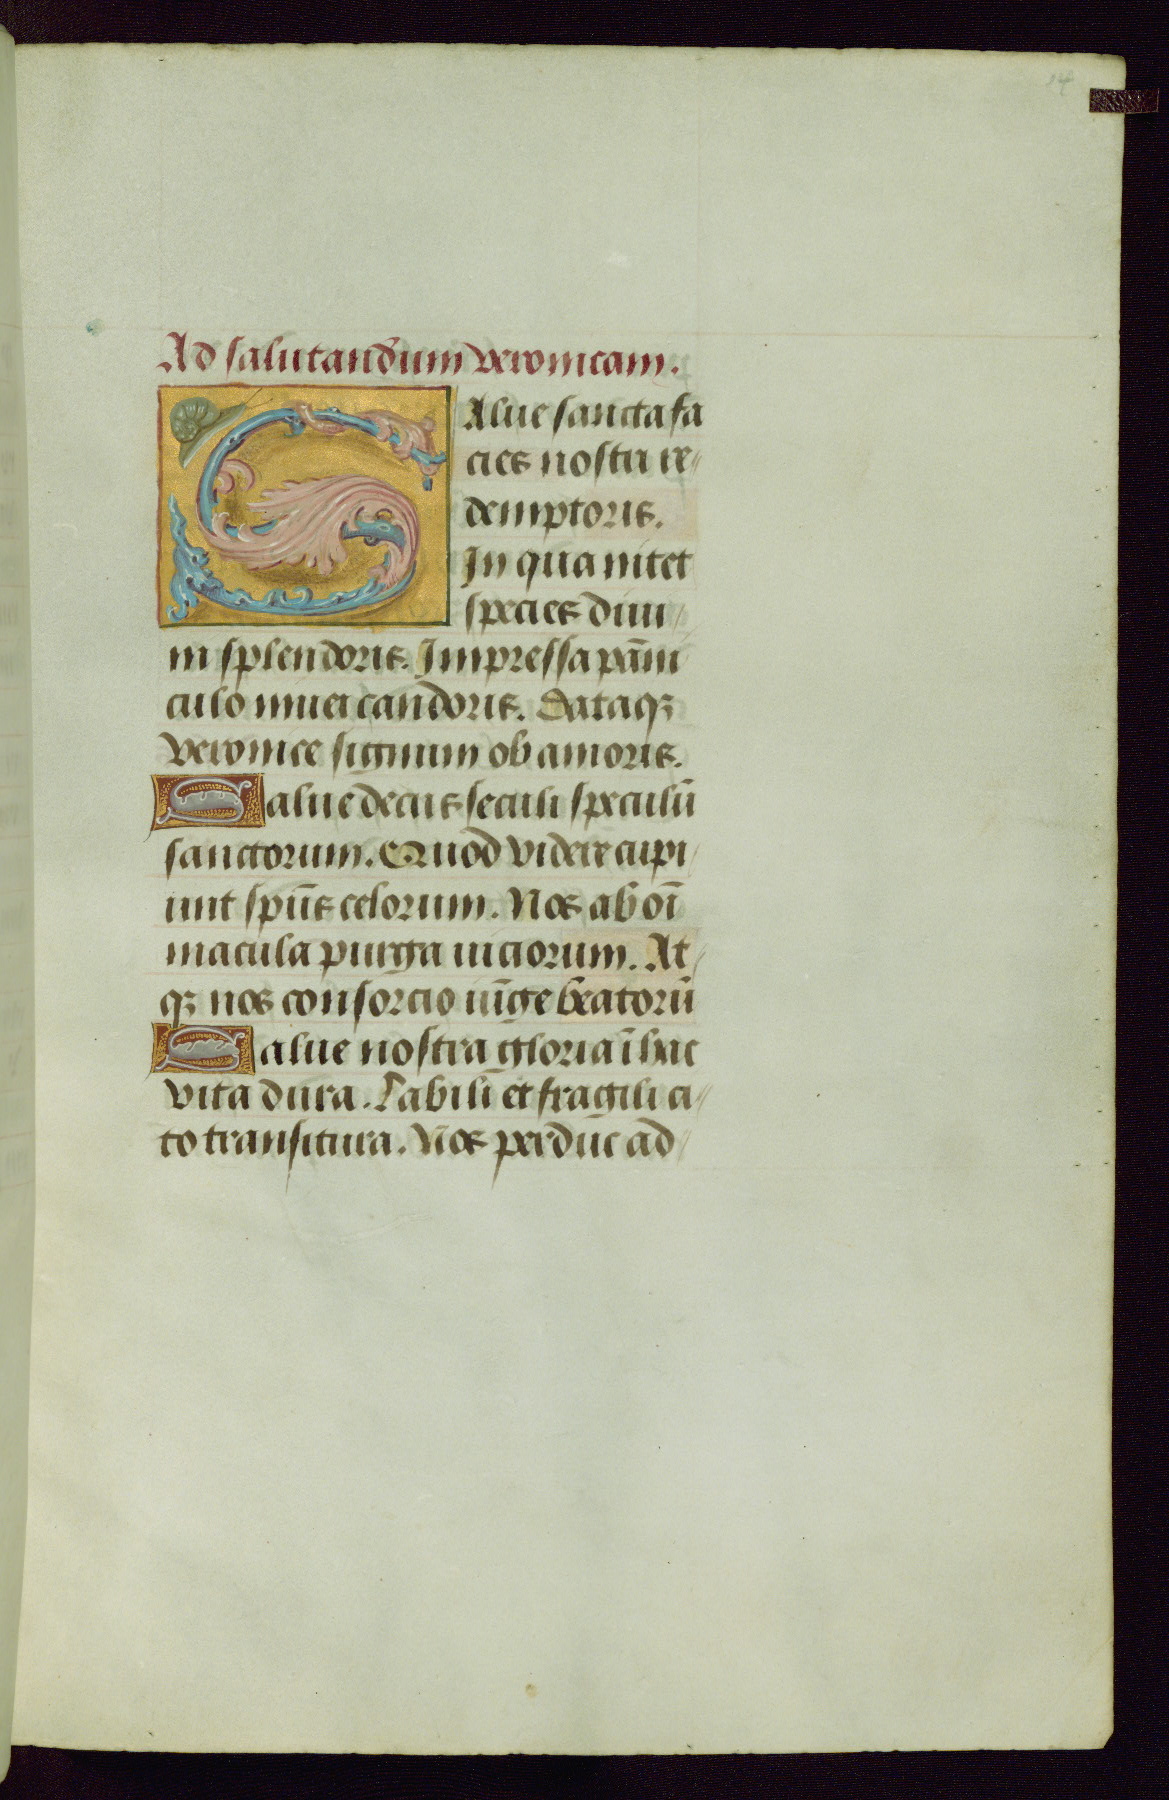 14
Ad salutandum veronicam.
SAlue sancta fa
cies nostri re
demptoris.
In qua nitet
species diui
ni splendoris. Impressa pãni
culo niuei candoris. Dataqꝫ
veronice signum ob amoris.
Salue decus seculi speculũ
sanctorum. Quod videre cupi
unt spũs celorum. Nos ab oĩ
macula purga uiciorum. At
qꝫ nos consorcio iũge beatorũ
Salue nostra gloria ĩ hac
vita dura. Labili et fragili ci
to transitura. Nos perduc ad